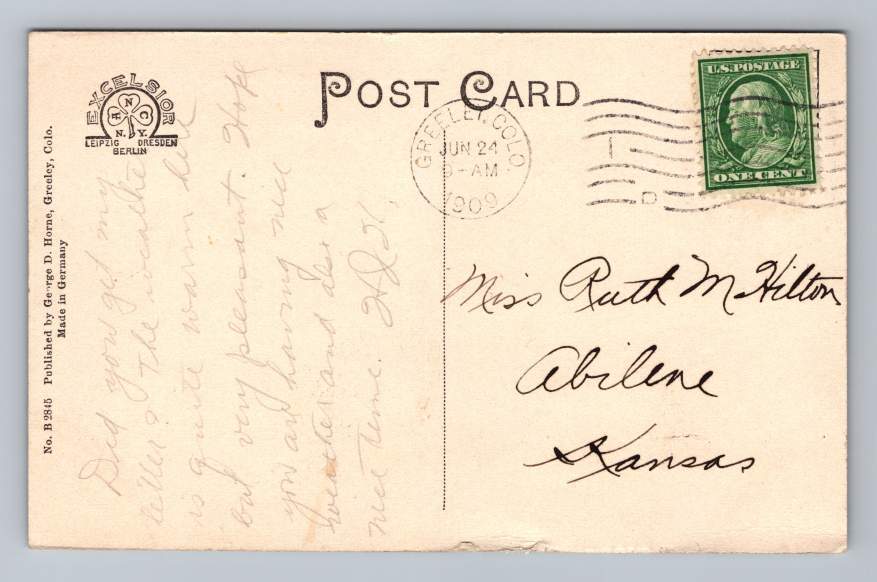 POST CARD
EXCELSIOR
A N C
N.Y.
LEIPZIG DRESDEN
BERLIN
No. B 2845 Published by George D. Horne, Greeley, Colo.
Made in Germany
GREELEY, COLO
JUN 24
9-AM
1909
1
D
U.S. POSTAGE
ONE CENT
Did you get my
letter? The weather
is quite warm here
but very pleasant. Hope
you are having nice
weather and also a
nice time.
Miss Ruth M Hilton
Abilene
Kansas